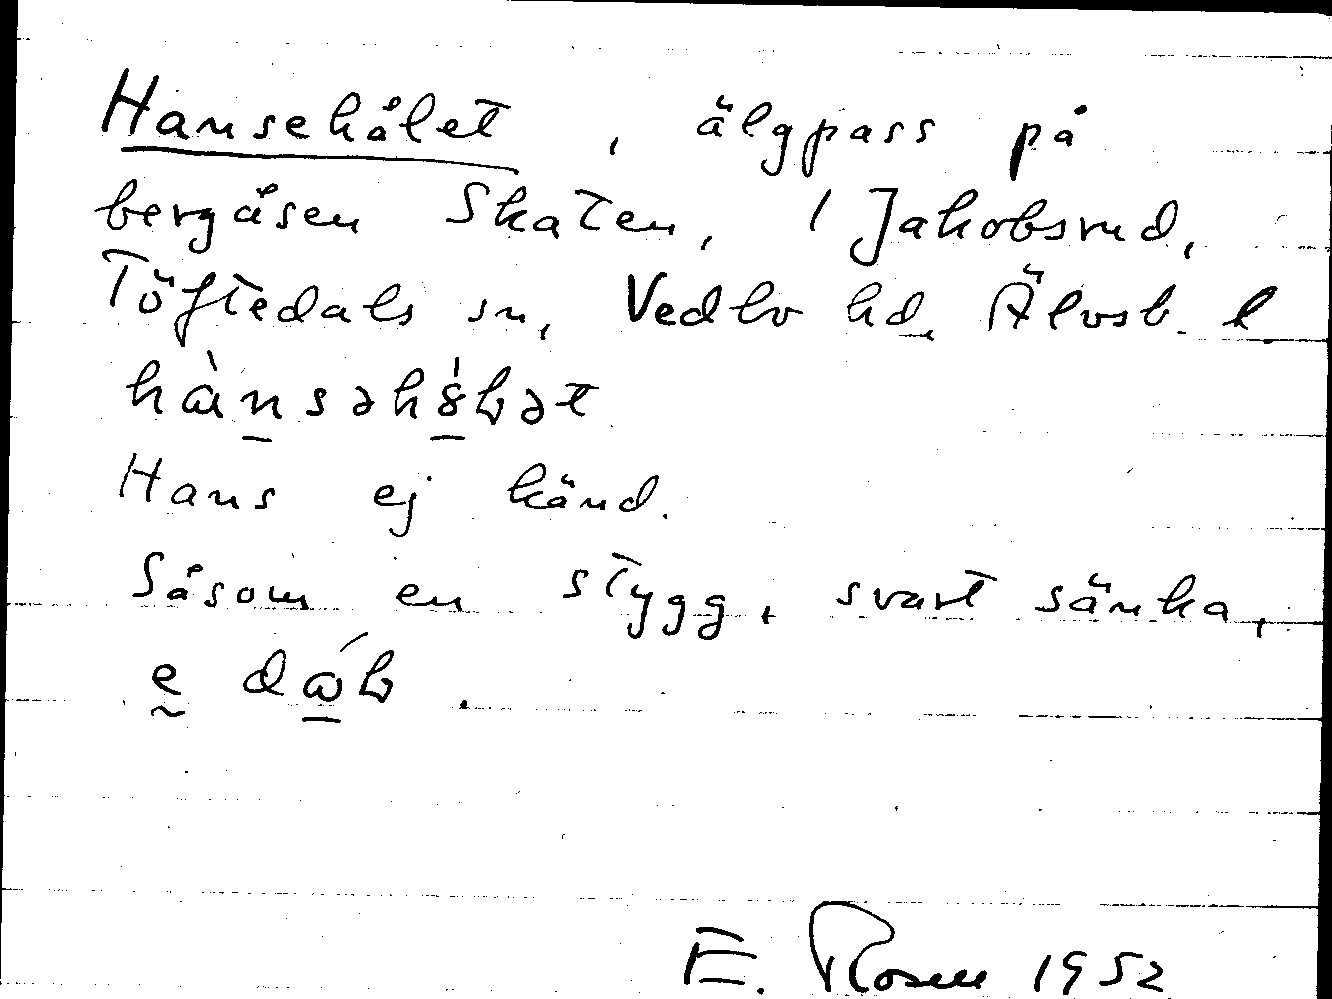 Hansehålet, älgpass på
bergåsen Skaten, 1 Jakobsrud,
Töftedals sn, Vedbo hd. Älvsb. l
hànsəhɷ́ɫət
Hans ej känd.
Såsom en stygg, svart sänka,
e dɷ́ɫ.
E. Rosen 1952